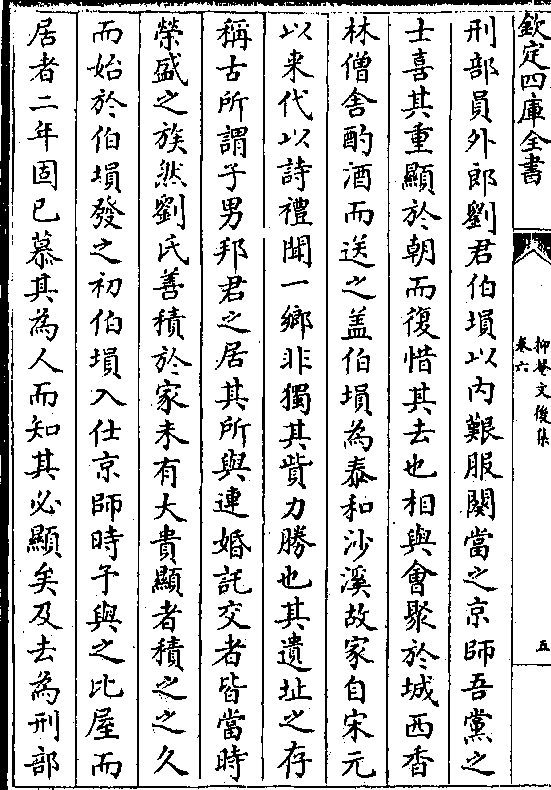 欽定四庫全書
抑菴文後集
卷六
五
刑部員外郎劉君伯塤以内艱服闋當之京師吾黨之
士喜其重顯於朝而復惜其去也相與會聚於城西香
林僧舎酌酒而送之盖伯塤為泰和沙溪故家自宋元
以来代以詩禮聞一鄉非獨其貲力勝也其遺址之存
稱古所謂子男邦君之居其所與連婚託交者皆當時
榮盛之族然劉氏善積於家未有大貴顯者積之之久
而始於伯塤發之初伯塤入仕京師時予與之比屋而
居者二年固已慕其為人而知其必顯矣及去為刑部